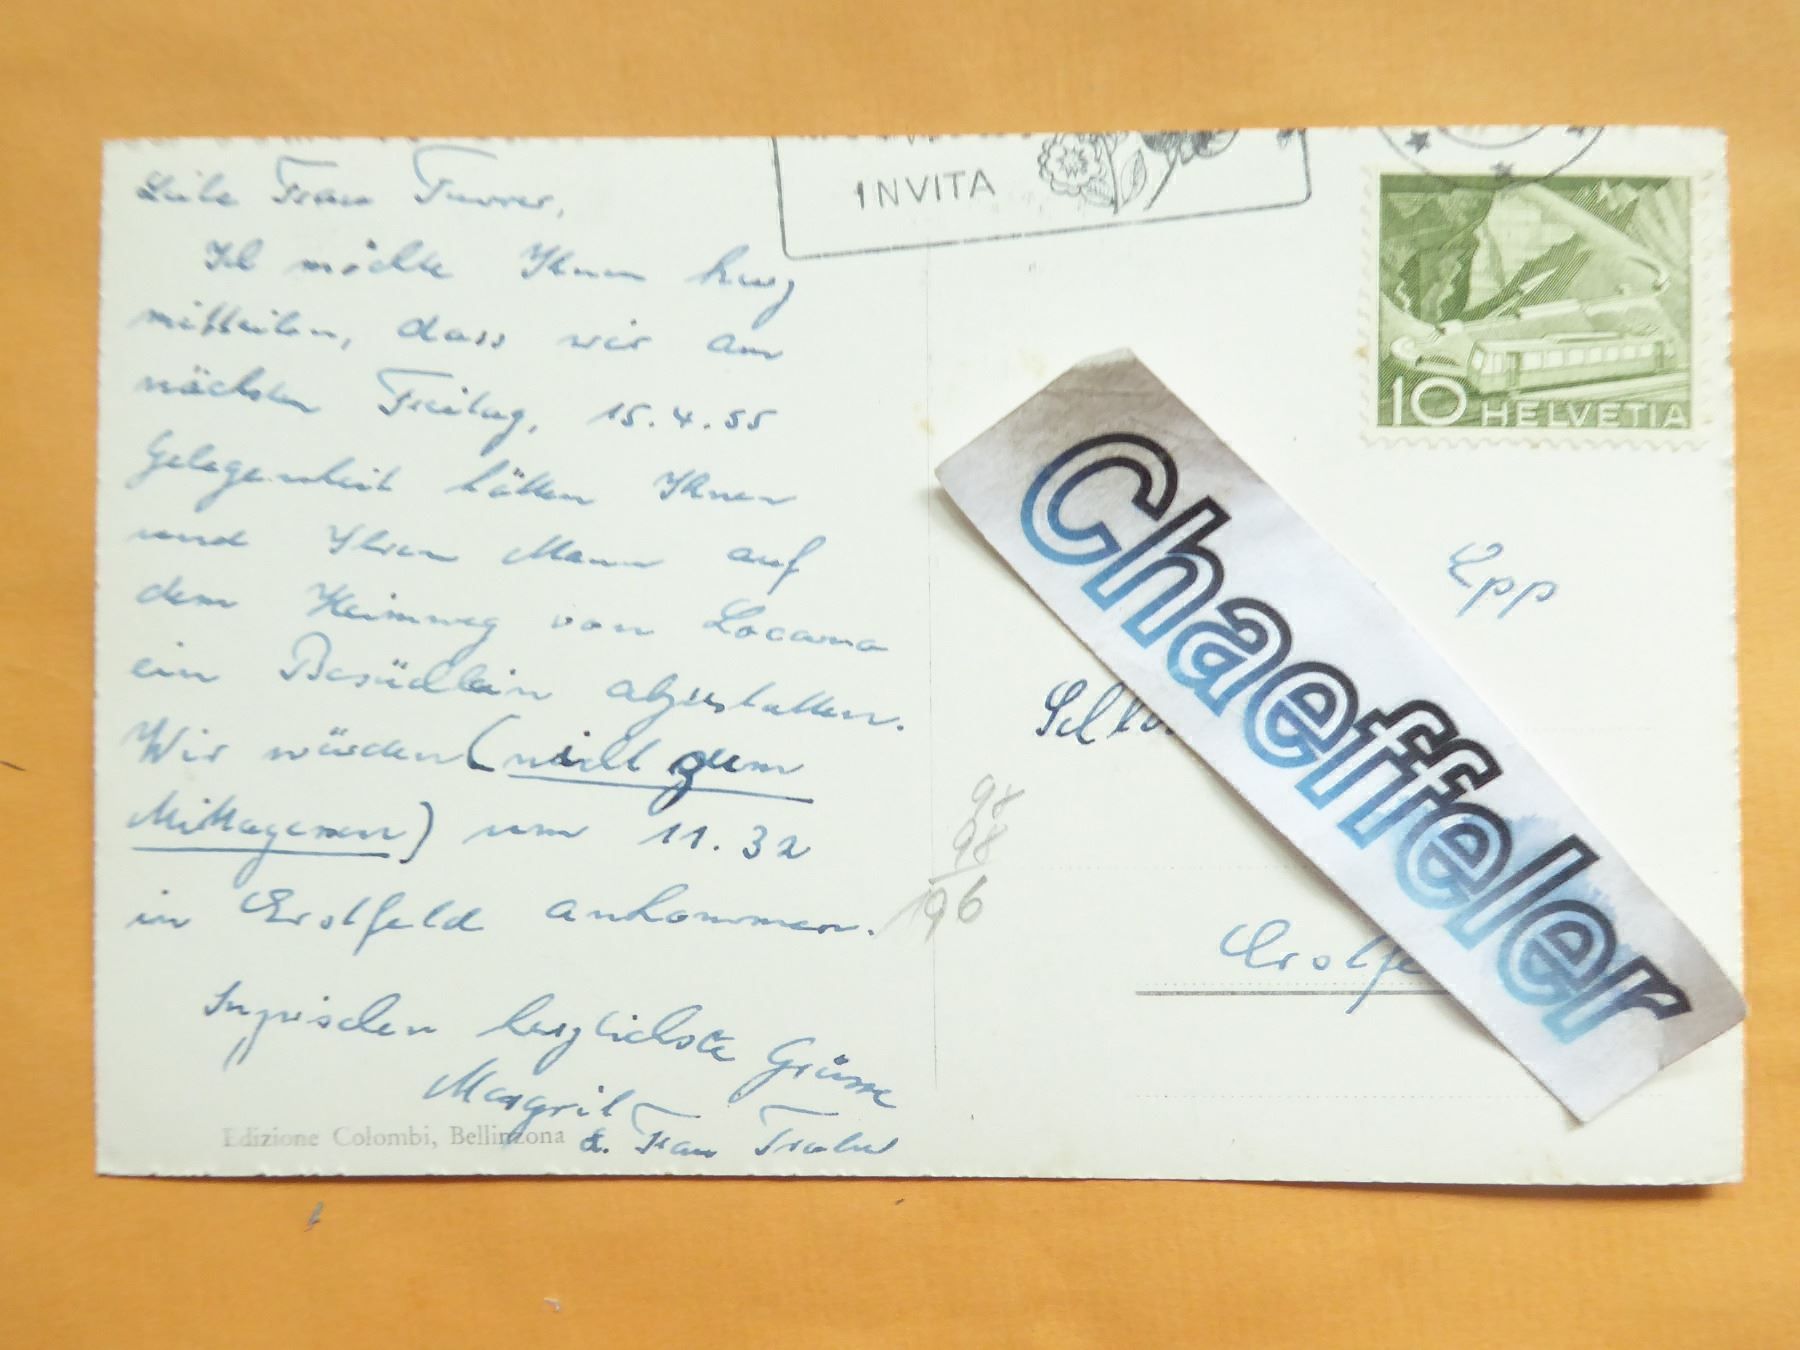 Liebe Frau Furrer,
Ich möchte Ihnen kurz
mitteilen, dass wir am
nächsten Freitag, 15.4.55
Gelegenheit hätten Ihnen
und Ihrem Mann auf
dem Heimweg von Locarno
ein Besüchlein abzustatten.
Wir würden (nicht zum
Mittagessen) um 11.32
in Erstfeld ankommen.
Inzwischen herzlichste Grüsse
Margrit
&. Frau
Edizione Colombi, Bellinzona
INVITA
10 HELVETIA
Epp
98
98
196
Erstfe
Chaeffeler